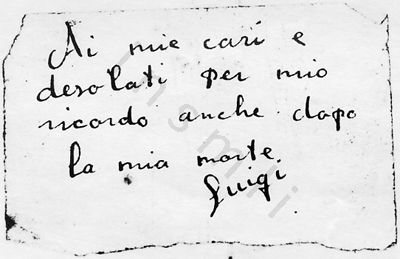 Ai mie cari e
desolati per mio
ricordo anche dopo
la mia morte
Luigi